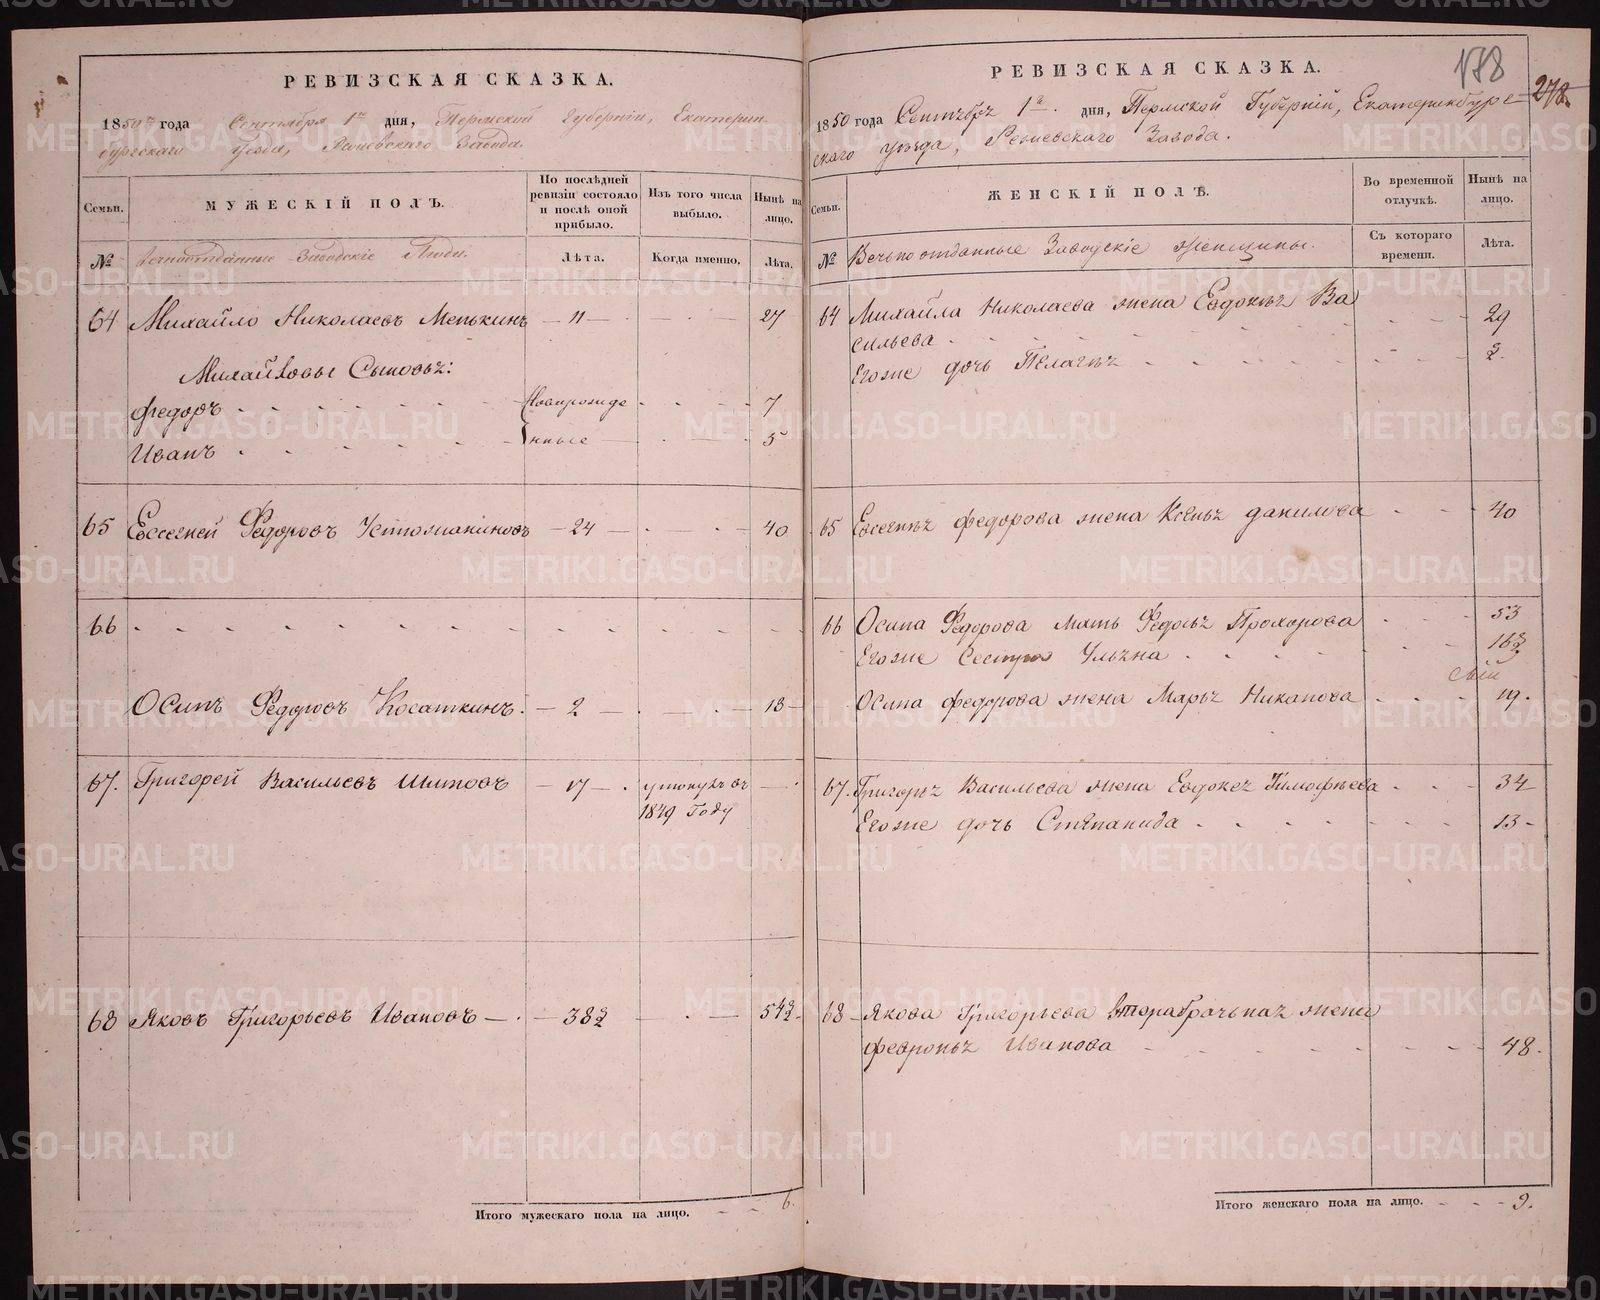 РЕВИЗСКАЯ СКАЗКА.
1850 года Сентября 1го дня, Пермской Губерніи, Екатерин
бургскаго Уезда, Завода.
Семьи.
МУЖЕСКІЙ ПОЛЪ.
По послѣдней ревизіи состояло и послѣ оной прибыло.
Изъ того числа выбыло.
Нынѣ на лицо.
№
Вечноотданные Заводскіе Люди.
Лѣта.
Когда именно.
Лѣта.
64 Михайло Николаевъ Менькинъ — 11 — 27
Михайловы Сыновья:
Федоръ Новорожде 7
Иванъ нные 5
65 Евсегней Федоровъ Устожаниновъ — 24 — 40
66
Осипъ Федоровъ Косаткинъ. — 2 — 18
67. Григорей Васильевъ Шитовъ — 17 — утонулъ въ
1849 Году
68 Яковъ Григорьевъ Ивановъ — 38½ 54½
Итого мужескаго пола на лицо. 6.
РЕВИЗСКАЯ СКАЗКА.
178
278
1850 года Сентября 1го дня, Пермской Губерніи, Екатеринбург
скаго уѣзда, Режевскаго Завода.
Семьи.
ЖЕНСКІЙ ПОЛЪ.
Во временной отлучкѣ.
Нынѣ на лицо.
№
Вечно отданные Заводскіе женщины.
Съ котораго времени.
Лѣта.
64 Михайла Николаева жена Евдокия Ва
сильева 29
Егоже дочь Пелагея 2.
65 Евсегнея Федорова жена Ксенья Данилова 40
66 Осипа Федорова Мать Федосья Прохорова 53
Егоже Сестра Ульяна 16½
Осипа Федорова жена Марья 19.
67. Григорья Васильева жена Евдокея Тимофѣева 34
Егоже дочь Степанида 13
68 Якова Григорьева Второбрачьная жена
Февронья Иванова 48.
Итого женскаго пола на лицо. 9.
METRIKI.GASO-URAL.RU